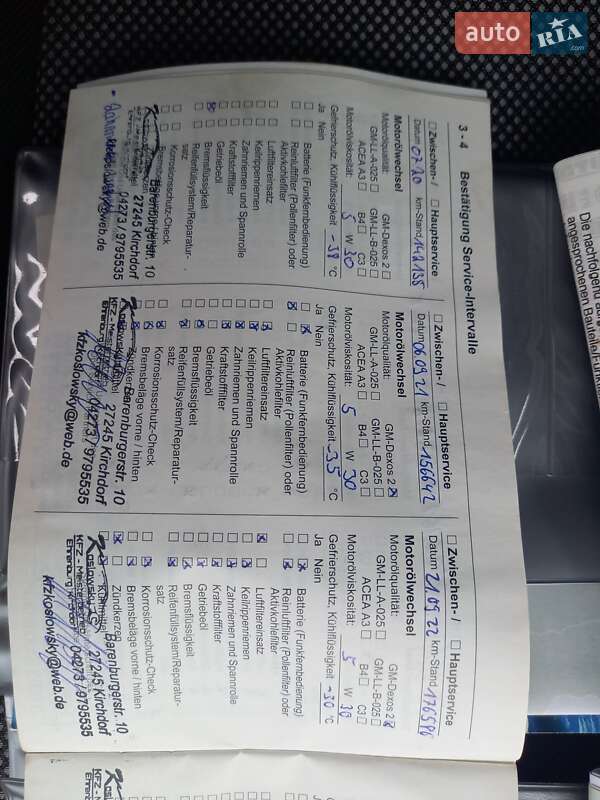 auto RIA.com
3 - 4 Bestätigung Service-Intervalle
☐ Zwischen- / ☐ Hauptservice
Datum 07.20 km-Stand 142135
Motorölwechsel
Motorölqualität: GM-Dexos 2 ☐
GM-LL-A-025 ☐ GM-LL-B-025 ☐
ACEA A3 ☐ B4 ☐ C3 ☐
Motorölviskosität: 5 W 30
Gefrierschutz. Kühlflüssigkeit -38 °C
Ja Nein
Batterie (Funkfernbedienung)
Reinluftfilter (Pollenfilter) oder
Aktivkohlefilter
Luftfiltereinsatz
Keilrippenriemen
Zahnriemen und Spannrolle
Kraftstofffilter
Getriebeöl
Bremsflüssigkeit
Reifenfüllsystem/Reparatur-
satz
Korrosionsschutz-Check
Barenburgerstr. 10
27245 Kirchdorf
04273 / 9795535
@web.de
☐ Zwischen- / ☐ Hauptservice
Datum 06.09.21 km-Stand 156642
Motorölwechsel
Motorölqualität: GM-Dexos 2 ☒
GM-LL-A-025 ☐ GM-LL-B-025 ☐
ACEA A3 ☐ B4 ☐ C3 ☐
Motorölviskosität: 5 W 30
Gefrierschutz. Kühlflüssigkeit -35 °C
Ja Nein
Batterie (Funkfernbedienung)
Reinluftfilter (Pollenfilter) oder
Aktivkohlefilter
Luftfiltereinsatz
Keilrippenriemen
Zahnriemen und Spannrolle
Kraftstofffilter
Getriebeöl
Bremsflüssigkeit
Reifenfüllsystem/Reparatur-
satz
Korrosionsschutz-Check
Bremsbeläge vorne / hinten
Zündkerzen
Barenburgerstr. 10
27245 Kirchdorf
04273 / 9795535
kfzkoslowsky@web.de
☐ Zwischen- / ☐ Hauptservice
Datum 21.09.22 km-Stand
Motorölwechsel
Motorölqualität: GM-Dexos 2 ☒
GM-LL-A-025 ☐ GM-LL-B-025 ☐
ACEA A3 ☐ B4 ☐ C3 ☐
Motorölviskosität: 5 W 30
Gefrierschutz. Kühlflüssigkeit -30 °C
Ja Nein
Batterie (Funkfernbedienung)
Reinluftfilter (Pollenfilter) oder
Aktivkohlefilter
Luftfiltereinsatz
Keilrippenriemen
Zahnriemen und Spannrolle
Kraftstofffilter
Getriebeöl
Bremsflüssigkeit
Reifenfüllsystem/Reparatur-
satz
Korrosionsschutz-Check
Bremsbeläge vorne / hinten
Zündkerzen
Kühlmittel
Koslowsky
Barenburgerstr. 10
27245 Kirchdorf
04273 / 9795535
kfzkoslowsky@web.de
Die nachfolgend
angesprochenen